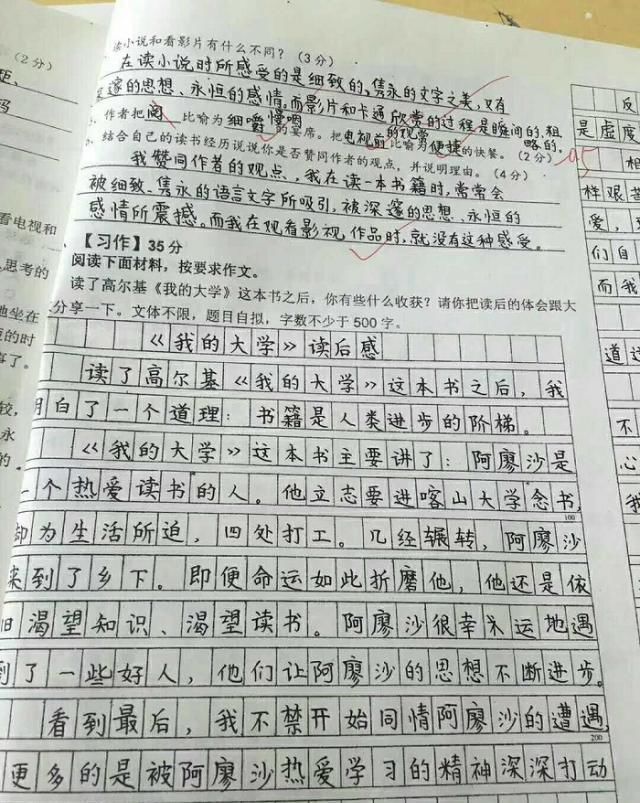 读小说和看影片有什么不同？（3分）
在读小说时所感受的是细致的、隽永的文字之美，又有
邃的思想、永恒的感情。而影片和卡通欣常的过程是瞬间的、粗
略的。
作者把阅 比喻为细嚼慢咽的宴席。把电视的 比喻为便捷的快餐。（2分）
结合自己的读书经历说说你是否赞同作者的观点，并说明理由。（4分）
我赞同作者的观点、我在读一本书籍时，常常会
被细致、隽永的语言文字所吸引，被深邃的思想、永恒的
感情所震撼。而我在观看影视作品时，就没有这种感受。
【习作】35分
阅读下面材料，按要求作文。
读了高尔基《我的大学》这本书之后，你有些什么收获？请你把读后的体会跟大
分享一下。文体不限，题目自拟，字数不少于500字。
《我的大学》读后感
读了高尔基《我的大学》这本书之后，我
明白了一个道理：书籍是人类进步的阶梯。
《我的大学》这本书主要讲了：阿廖沙是
一个热爱读书的人。他立志要进喀山大学念书，
100
却为生活所迫，四处打工。几经辗转，阿廖沙
来到了乡下。即便命运如此折磨他，他还是依
旧渴望知识、渴望读书。阿廖沙很幸运地遇
到了一些好人，他们让阿廖沙的思想不断进步。
看到最后，我不禁开始同情阿廖沙的遭遇，
200
更多的是被阿廖沙热爱学习的精神深深打动
（2分）
码
看电视和
思考的
地坐在
的时
事了。
较，
永
的。
95
反
是虚度
相
样艰苦
爱，
们自
而我
道这
不
心
我